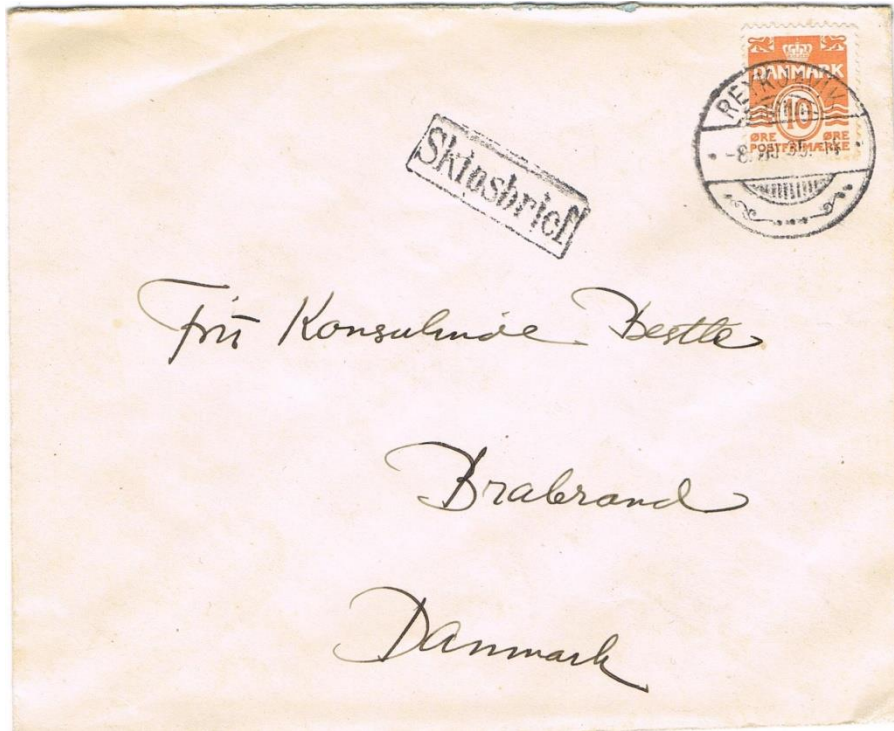 DANMARK
10
ØRE ØRE
POSTFRIMÆRKE
REYKJAVIK
Skipsbrief
Frú Konsulinde Bestle
Brabrand
Danmark